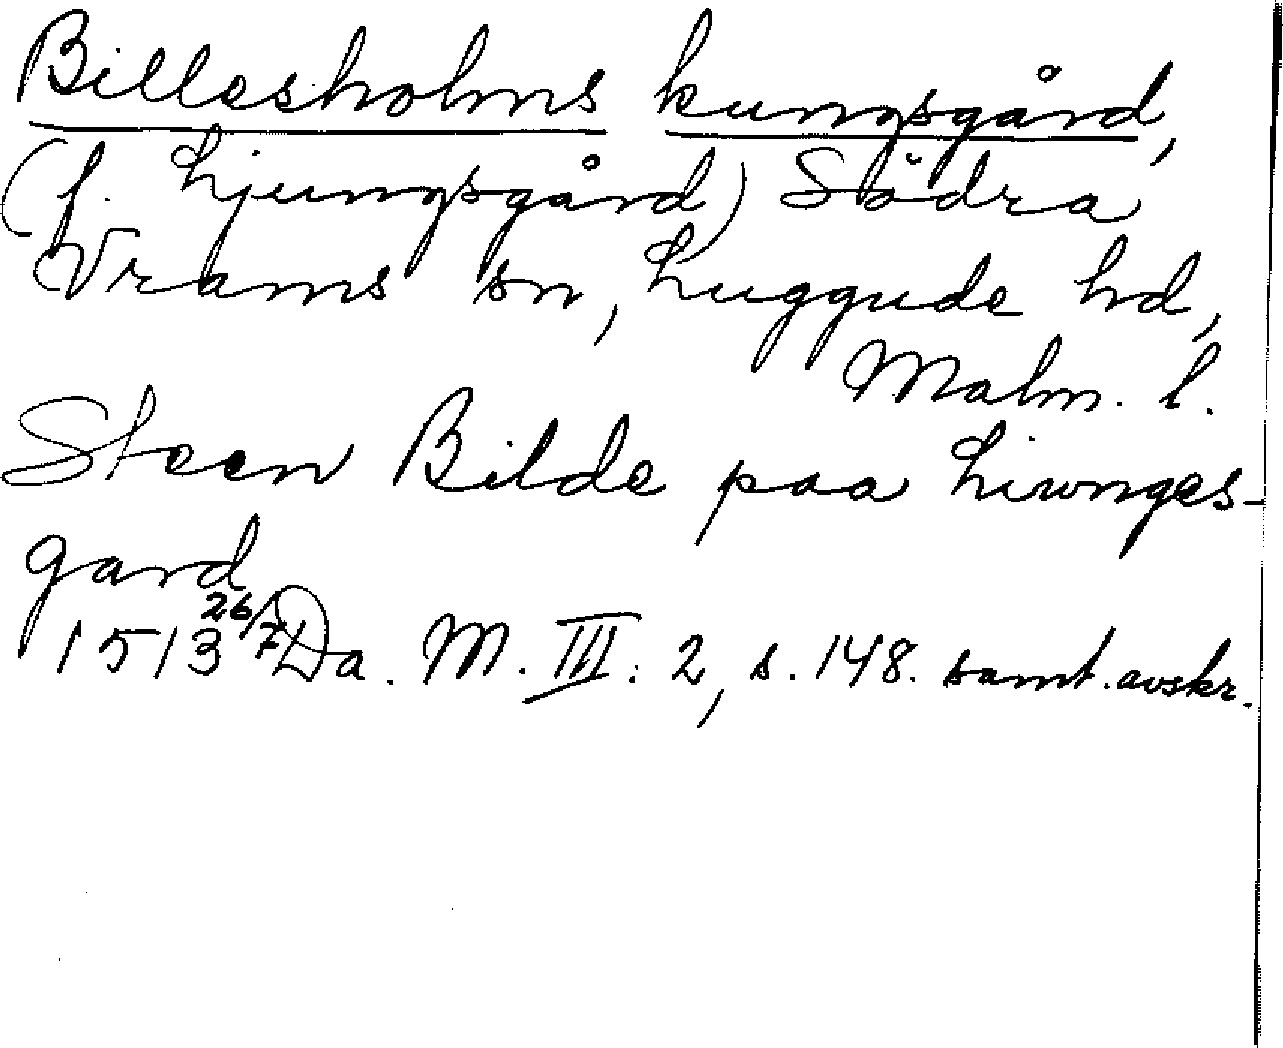 Billesholms kungsgård,
(f. Ljungsgård) Södra
Vrams sn, Luggude hd,
Malm. l.
Steen Bilde paa Liwnges-
gard
1513 26/7 Da. M. III: 2, s. 148. samt. avskr.